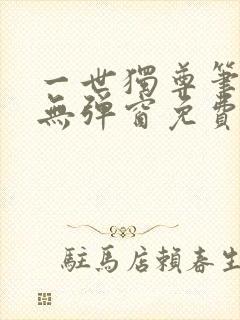 一世獨尊筆
無彈窗免費
駐馬店賴春生